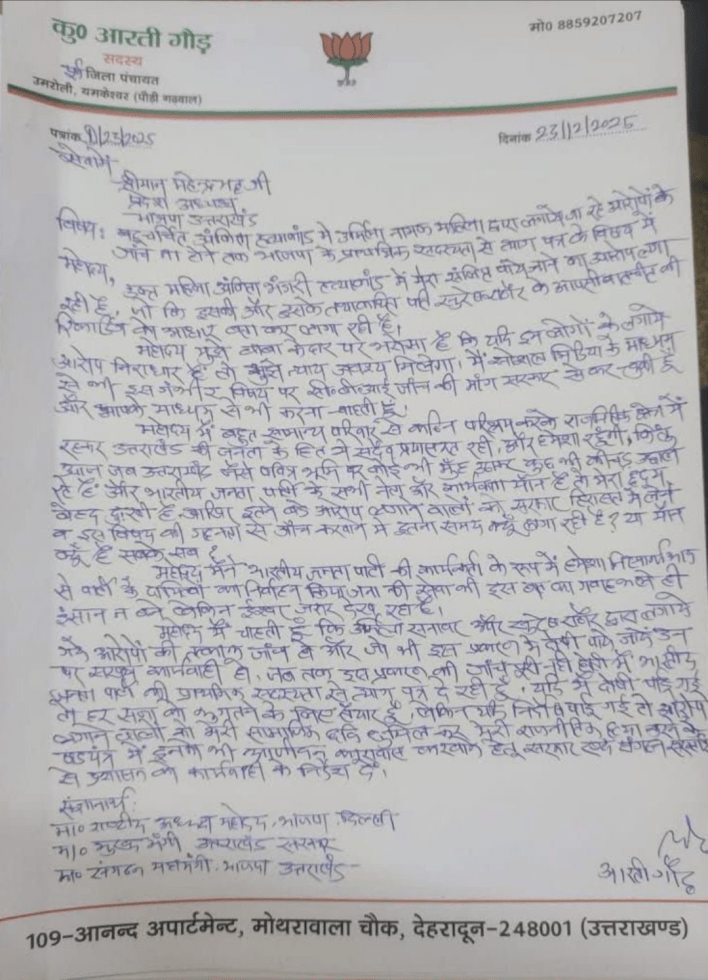 कु0 आरती गौड़
सदस्य
पूर्व जिला पंचायत
उमरोली, यमकेश्वर (पौड़ी गढ़वाल)
मो0 8859207207
पत्रांक
दिनांक 23/12/2025
सेवा में
श्रीमान महेन्द्र भट्ट जी
प्रदेश अध्यक्ष
भाजपा उत्तराखंड
विषय: बहुचर्चित अंकिता हत्याकांड में उर्मिला नामक महिला द्वारा लगाये जा रहे आरोपों के
जाँच ना होने तक भाजपा के प्राथमिक सदस्यता से त्याग पत्र के विषय में
महोदय,
उक्त महिला अंकिता भंडारी हत्याकांड में मेरा होने का आरोप लगा
रही है, जो कि इसकी और इसके तथाकथित पति सुरेश राठौर के आपसी बातचीत की
रिकार्डिंग को आधार बना कर लगा रही है।
महोदय मुझे बाबा केदार पर भरोसा है कि यदि इन लोगों के लगाये
आरोप निराधार है तो मुझे न्याय अवश्य मिलेगा। मैं सोशल मिडिया के माध्यम
से भी इस गंभीर विषय पर सी०बी०आई जाँच की माँग सरकार से कर चुकी हूँ
और आपके माध्यम से भी करना चाहती हूँ।
महोदय मैं बहुत सामान्य परिवार से कठिन परिश्रम करके राजनितिक क्षेत्र में
रहकर उत्तराखंड की जनता के हित में सदैव प्रयासरत रही, और हमेशा रहूँगी, किंतु
आज जब उत्तराखंड जैसे पवित्र भूमि पर कोई भी मुँह उठाकर कुछ भी कीचड़ उछाल
रहे है और भारतीय जनता पार्टी के सभी नेता और कार्यकर्ता मौन है तो मेरा हृदय
बेहद दुःखी है आखिर इतने बड़े आरोप लगाने वालों को सरकार हिरासत में लेने
व इस विषय की गहनता से जाँच करवाने में इतना समय क्यूँ लगा रही है? या मौन
क्यूँ है सबके सब?
महोदय मैंने भारतीय जनता पार्टी की कार्यकर्ता के रूप में हमेशा निस्वार्थ भाव
से पार्टी के दायित्वों का निर्वहन किया
इंसान न बने लेकिन ईश्वर जरूर देख रहा है।
महोदय मैं चाहती हूँ कि उर्मिला सनावर और सुरेश राठौर द्वारा लगाये
गये आरोपों की तत्काल जाँच हो और जो भी इस प्रकरण में दोषी पाये जाये उन
पर सख्त कार्यवाही हो, जब तक इस प्रकरण की जाँच पूरी नही होती मैं भारतीय
जनता पार्टी की प्राथमिक सदस्यता से त्याग पत्र दे रही हूँ, यदि मैं दोषी पाई गई
तो हर सजा को भुगतने के लिए तैयार हूँ, लेकिन यदि निर्दोष पाई गई तो आरोप
लगाने वालों को मेरी सामाजिक छवि धूमिल कर मेरी राजनीतिक हत्या करने के
षडयंत्र में इनको भी आजीवन कारावास करवाने हेतु सरकार एवं संगठन
से प्रशासन को कार्यवाही के निर्देश दें।
संज्ञानार्थ:
मा० राष्ट्रीय अध्यक्ष महोदय, भाजपा दिल्ली
मा० मुख्य मंत्री उत्तराखंड सरकार
मा० संगठन महामंत्री, भाजपा उत्तराखंड
आरती गौड़
109-आनन्द अपार्टमेन्ट, मोथरावाला चौक, देहरादून-248001 (उत्तराखण्ड)